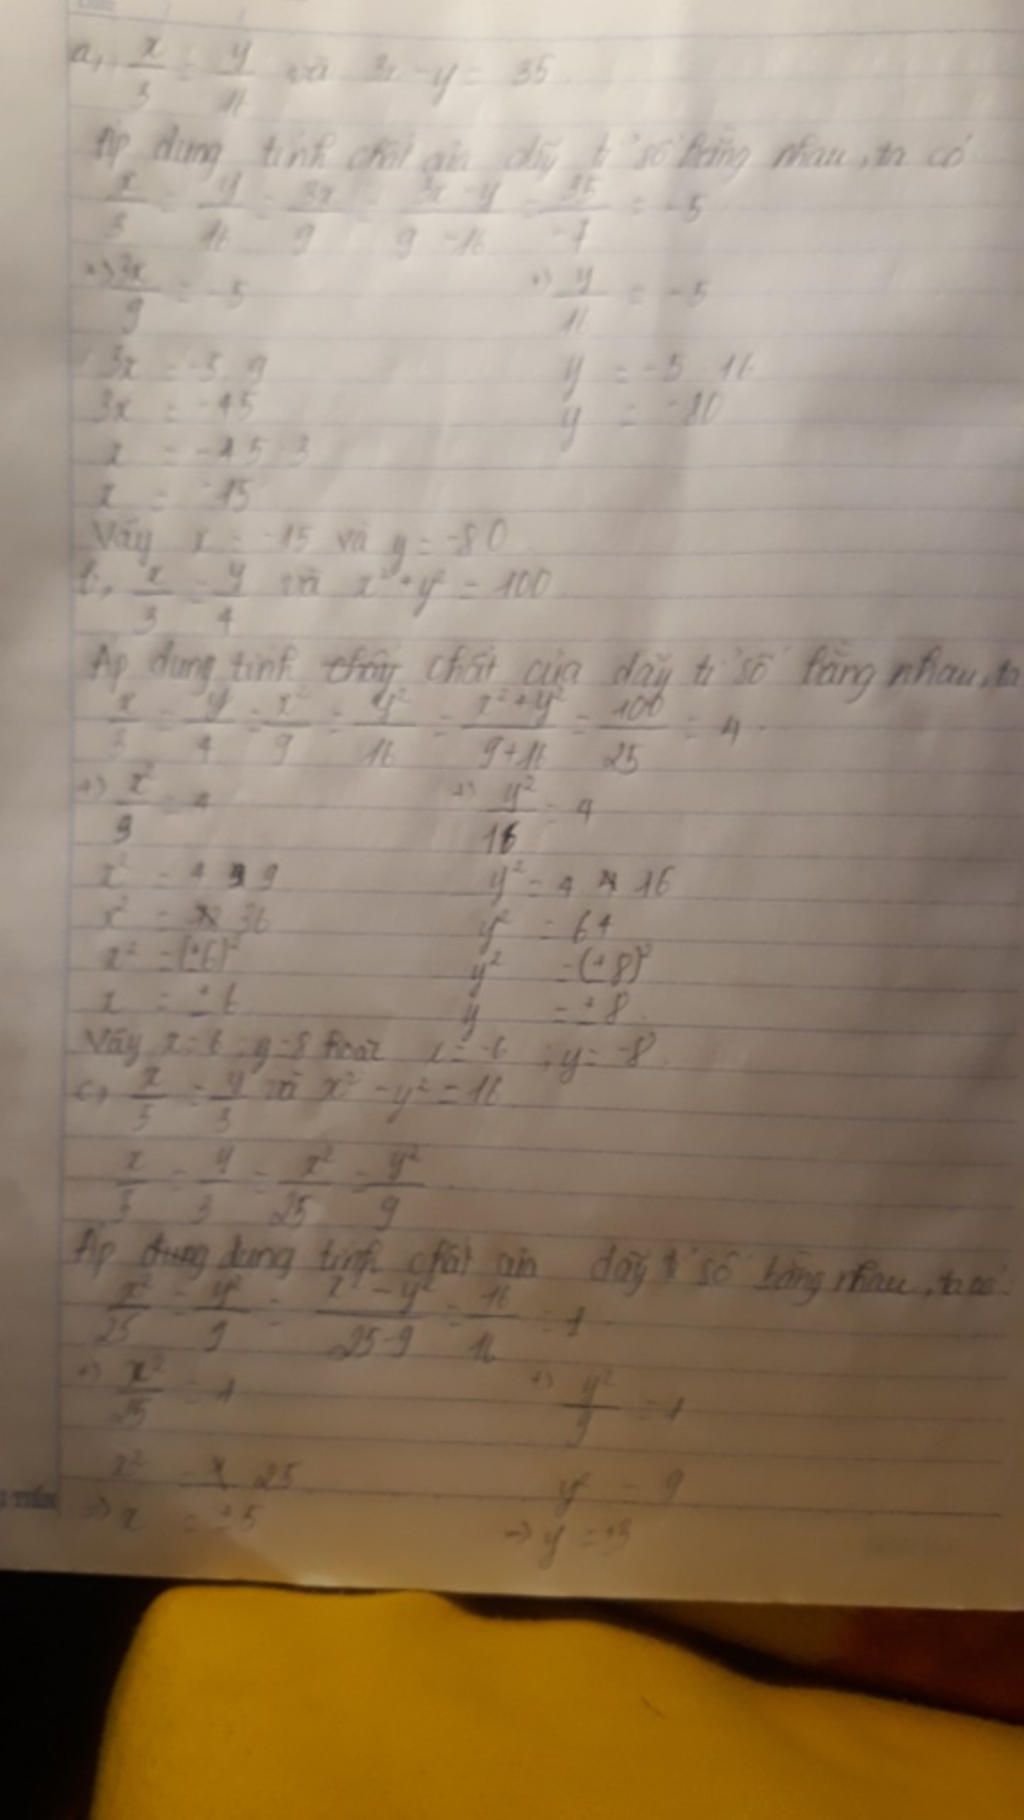 a, x/3 = y/16 và 3x - y = 35
Áp dụng tính chất của dãy tỉ số bằng nhau, ta có
x/3 = y/16 = 3x/9 = 3x - y/9 - 16 = 35/-7 = -5
+) 3x/9 = -5 +) y/16 = -5
3x = -5 . 9 y = -5 . 16
3x = -45 y = -80
x = -45 : 3
x = -15
Vậy x = -15 và y = -80
b, x/3 = y/4 và x² + y² = 100
Áp dụng tính chất của dãy tỉ số bằng nhau, ta
x/3 = y/4 = x²/9 = y²/16 = x² + y²/9 + 16 = 100/25 = 4
+) x²/9 = 4 +) y²/16 = 4
x² = 4 . 9 y² = 4 . 16
x² = 36 y² = 64
x² = (±6)² y² = (±8)²
x = ±6 y = ±8
Vậy x = 6 ; y = 8 hoặc x = -6 ; y = -8
c, x/5 = y/3 và x² - y² = 16
x/5 = y/3 = x²/25 = y²/9
Áp dụng tính chất của dãy tỉ số bằng nhau, ta có:
x²/25 = y²/9 = x² - y²/25 - 9 = 16/16 = 1
+) x²/25 = 1 +) y²/9 = 1
x² = 25 y² = 9
=> x = ±5 => y = ±3
TIẾN